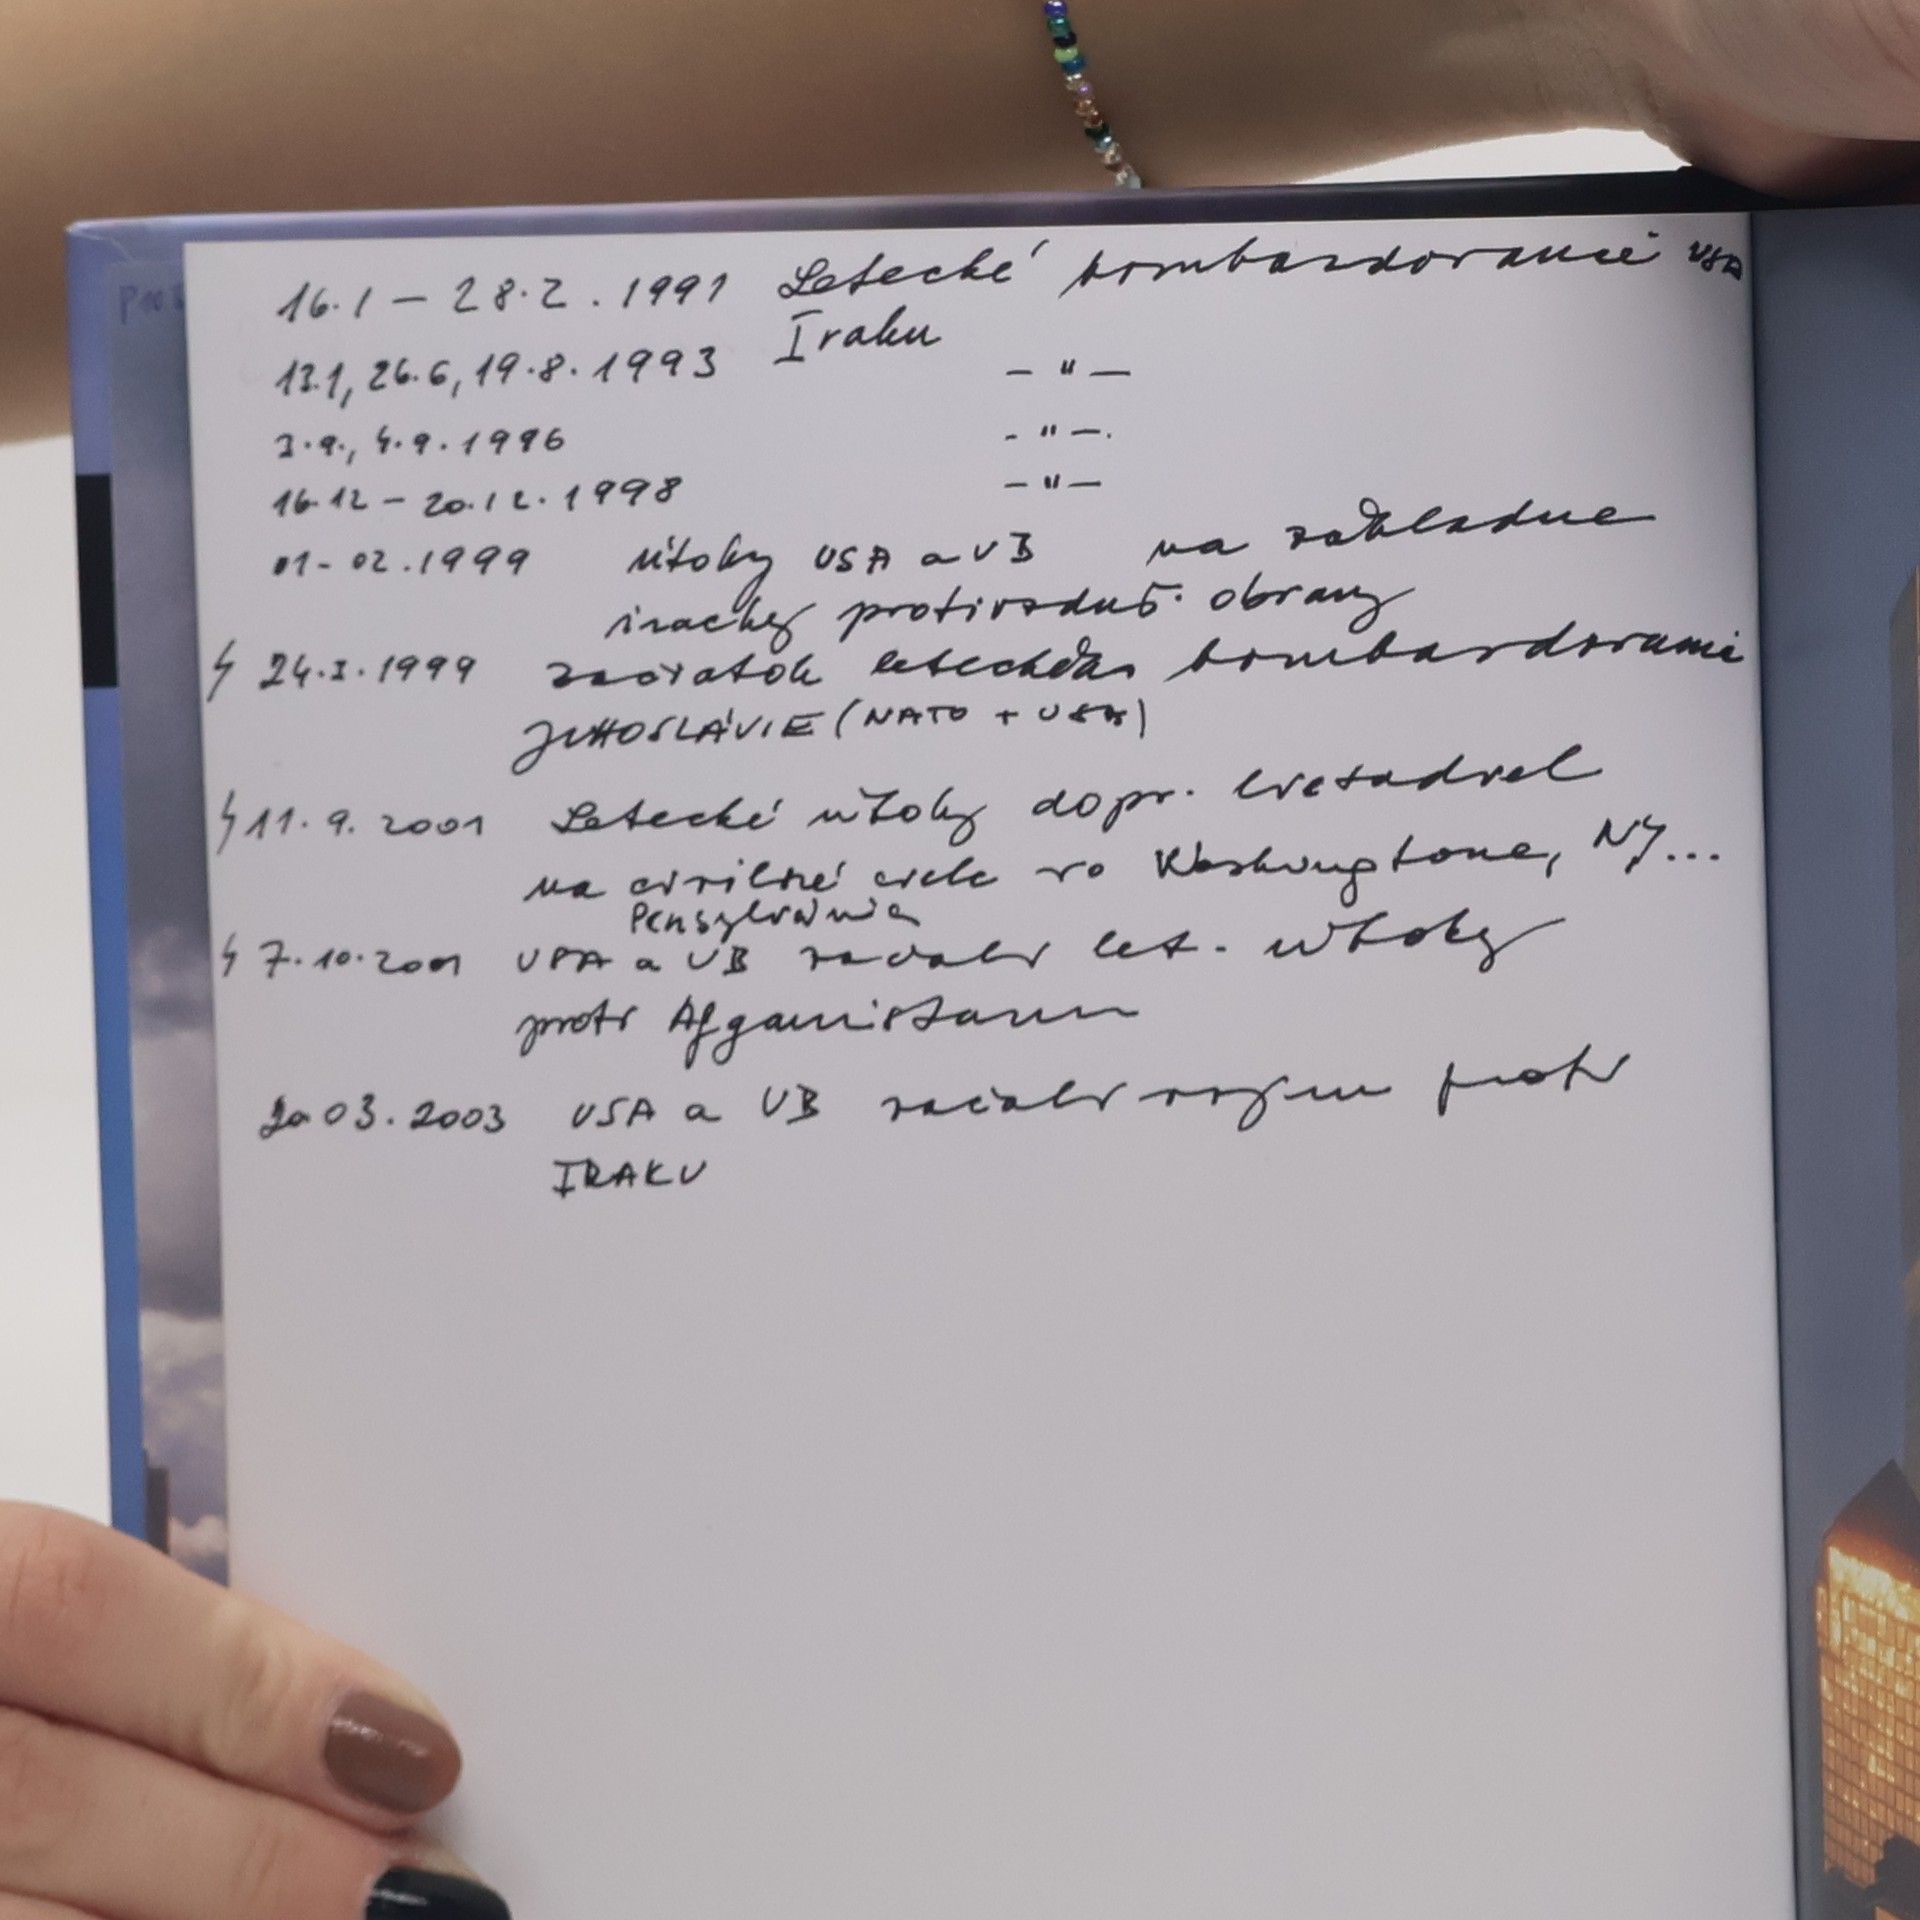 16.1 – 28.2.1991 Letecké bombardovanie USA
Iraku
13.1, 26.6, 19.8.1993 – " –
3.9., 4.9.1996 - " –.
16.12 – 20.12.1998 – " –
01 - 02.1999 útoky USA a VB na základne
irackej protivzduš. obrany
24.3.1999 začiatok bombardovania
JUHOSLÁVIE (NATO + USA)
11.9.2001 Letecké útoky dopr. lietadiel
na civilné ciele vo Washingtone, NY...
Pensylvánia
7.10.2001 USA a VB začali let. útoky
proti Afganistanu
20 03.2003 USA a VB začali vojnu proti
IRAKU